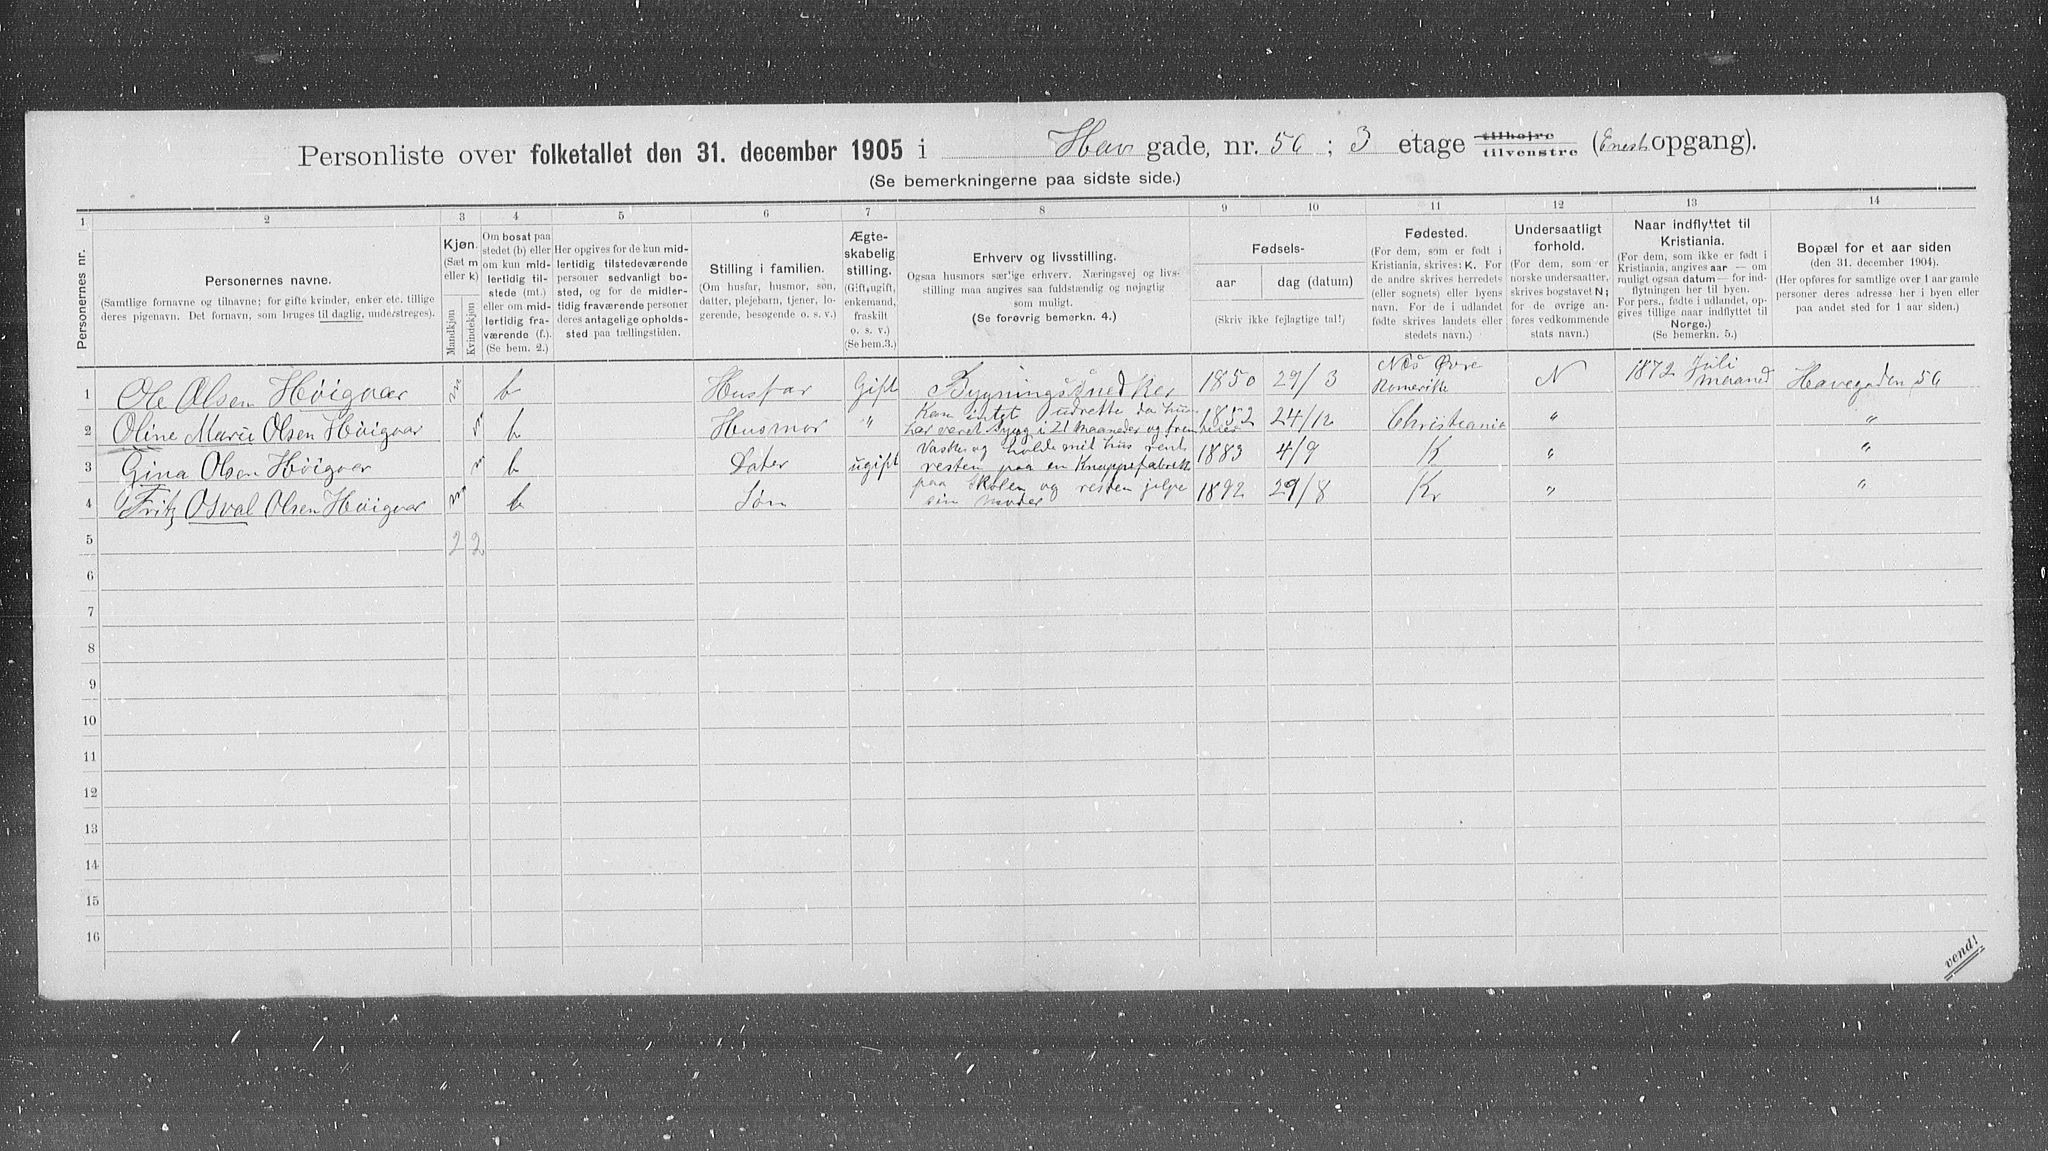 Personliste over folketallet den 31. december 1905 i Hav gade, nr. 56 ; 3 etage tilhøjre tilvenstre (Enest opgang).
(Se bemerkningerne paa sidste side.)
1 2 3 4 5 6 7 8 9 10 11 12 13 14
Personernes nr.
Personernes navne.
(Samtlige fornavne og tilnavne; for gifte kvinder, enker etc. tillige
deres pigenavn. Det fornavn, som bruges til daglig, understreges).
Kjøn.
(Sæt m
eller k)
Mandkjøn
Kvindekjøn
Om bosat paa
stedet (b) eller
om kun mid-
lertidig til-
stede (mt.)
eller om mid-
lertidig fra-
værende (f.).
(Se bem. 2.)
Her opgives for de kun mid-
lertidig tilstedeværende
personer sedvanlig bo-
sted, og for de midler-
tidig fraværende personer
deres antagelige opholds-
sted paa tællingstiden.
Stilling i familien.
(Om husfar, husmor, søn,
datter, plejebarn, tjener, lo-
gerende, besøgende o. s. v.)
Ægte-
skabelig
stilling.
(Gift, ugift,
enkemand,
fraskilt
o. s. v.)
(Se bem.3.)
Erhverv og livsstilling.
Ogsaa husmors særlige erhverv. Næringsvej og livs-
stilling maa angives saa fuldstændig og nøjagtig
som muligt.
(Se forøvrig bemerkn. 4.)
Fødsels-
aar
dag (datum)
(Skriv ikke fejlagtige tal!)
Fødested.
(For dem, som er født i
Kristiania, skrives: K. For
de andre skrives herredets
(eller sognets) eller byens
navn. For de i udlandet
fødte skrives landets eller
stedets navn.)
Undersaatligt
forhold.
(For dem, som er
norske undersaatter,
skrives bogstavet N;
for de øvrige an-
føres vedkommende
stats navn.)
Naar indflyttet til
Kristiania.
(For dem, som ikke er født i
Kristiania, angives aar — om
muligt ogsaa datum — for ind-
flytningen her til byen.
For pers., fødte i udlandet, op-
gives tillige naar indflyttet til
Norge.)
(Se bemerkn. 5.)
Bopæl for et aar siden
(den 31. december 1904).
(Her opføres for samtlige over 1 aar gamle
personer deres adresse her i byen eller
paa andet sted for 1 aar siden.)
1 Ole Olsen Höigvar m b Husfar Gift Bygningssnedker 1850 29/3 Nes Øvre Romerike N 1872 Juli maaned Havegaden 56
2 Oline Marie Olsen Höigvar b Husmor " Kan intet udrette da hun har veret syg i 21 maaneder og frem 1852 24/12 Christiania " "
3 Gina Olsen Höigvar b Dater ugift Vaske og holde mit hus rent resten paa en Knappefabrik 1883 4/9 K " "
4 Fritz Osval Olsen Höigvar m b Søn paa skolen og resten jelpe sin moder 1892 29/8 Kr " "
5 2 2
6
7
8
9
10
11
12
13
14
15
16
vend!